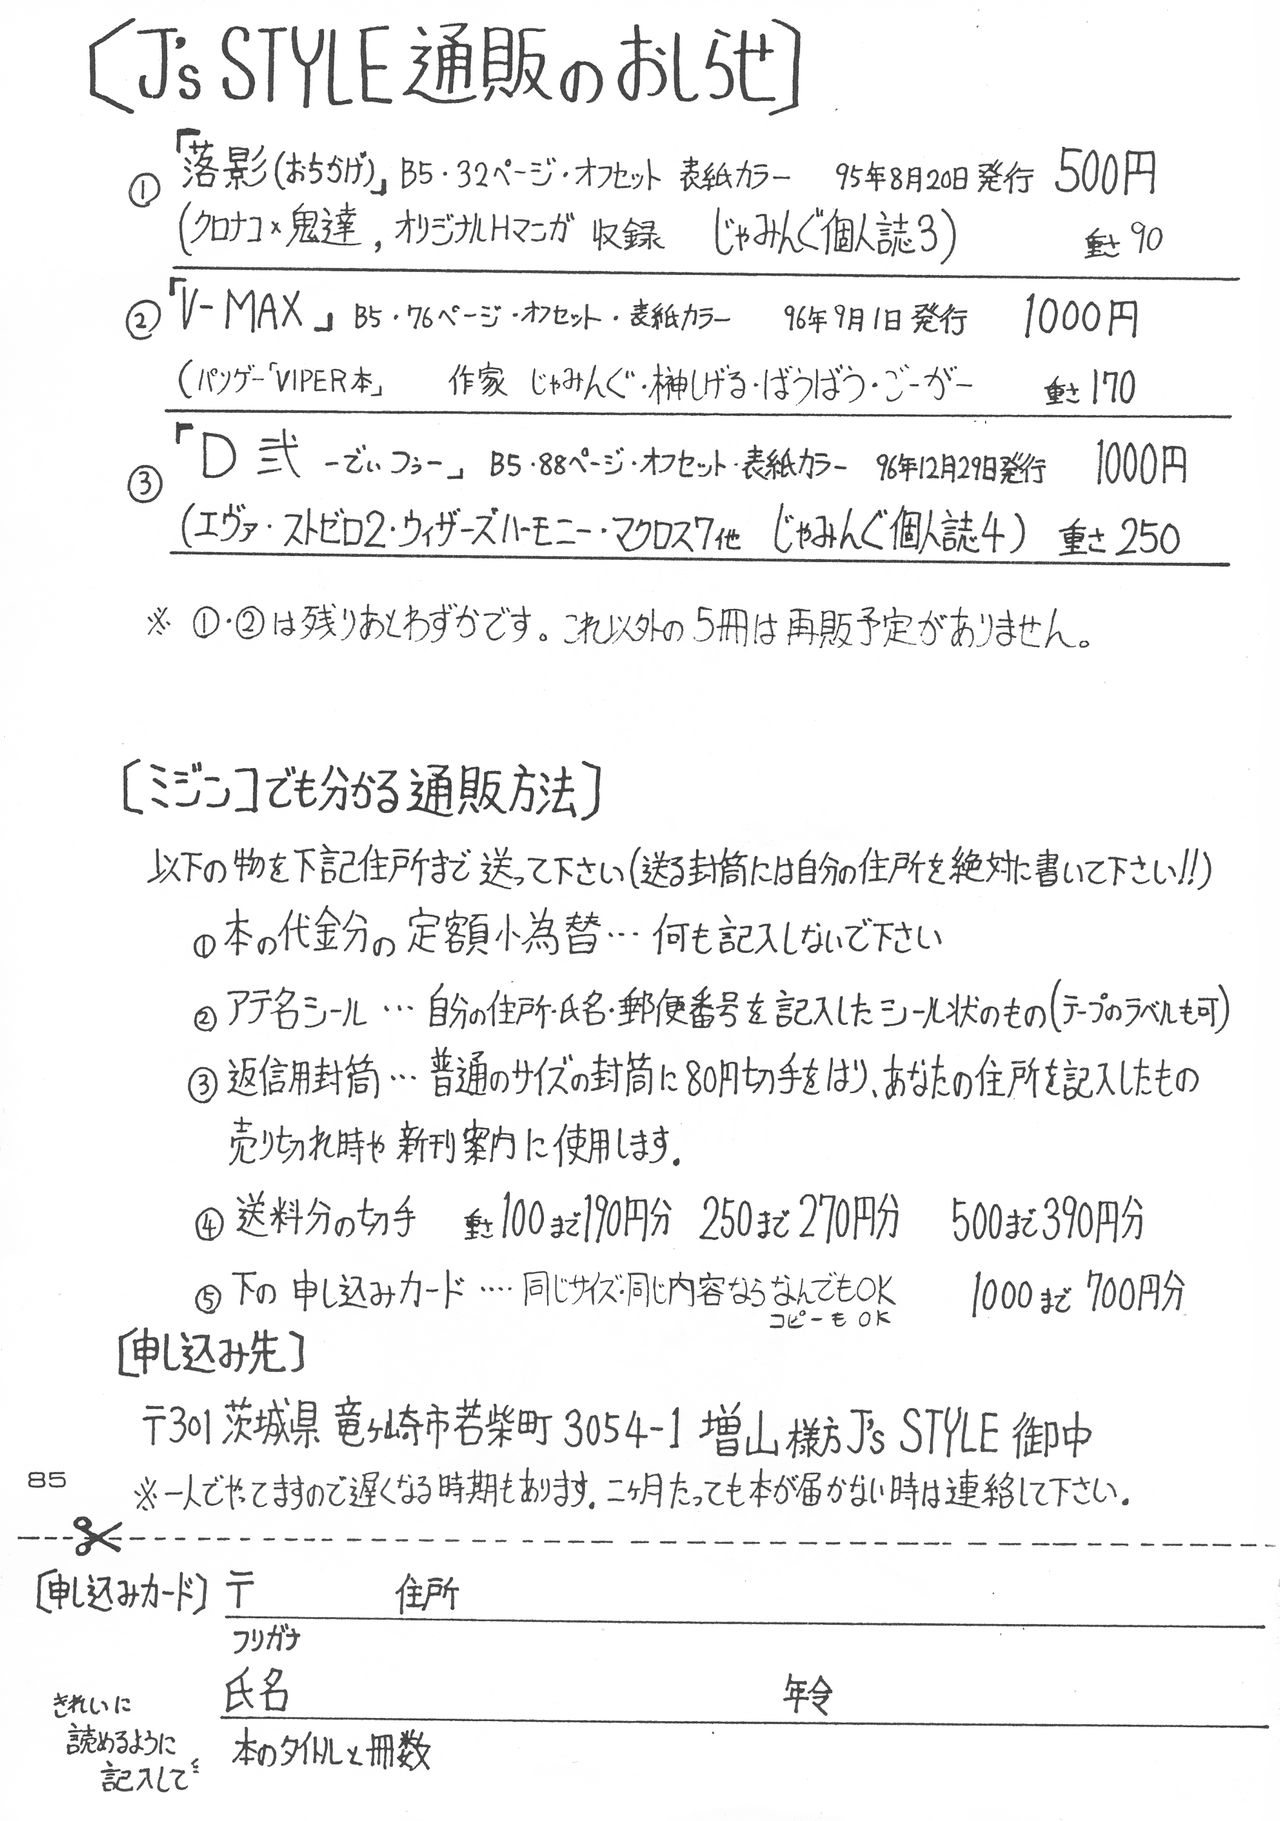 [J's STYLE 通販のおしらせ]
① 『落影(おちかげ)』 B5・32ページ・オフセット 表紙カラー 95年8月20日発行 500円
(クロナコ×鬼達,オリジナルHマンガ 収録 じゃみんぐ個人誌3) 重さ90
② 『V-MAX』 B5・76ページ・オフセット・表紙カラー 96年9月1日発行 1000円
(パソゲー「VIPER本」 作家 じゃみんぐ・榊しげる・ばうばう・ごーがー 重さ170
③ 『D弐 -でぃつぅー』 B5・88ページ・オフセット・表紙カラー 96年12月29日発行 1000円
(エヴァ・ストゼロ2・ウィザーズハーモニー・マクロス7他 じゃみんぐ個人誌4) 重さ250
※ ①・②は残りあとわずかです。これ以外の5冊は再販予定がありません。
[ミジンコでも分かる通販方法]
以下の物を下記住所まで送って下さい(送る封筒には自分の住所を絶対に書いて下さい!!)
① 本の代金分の定額小為替… 何も記入しないで下さい
② アテ名シール … 自分の住所・氏名・郵便番号を記入したシール状のもの(テープのラベルも可)
③ 返信用封筒 … 普通のサイズの封筒に80円切手をはり、あなたの住所を記入したもの
売り切れ時や新刊案内に使用します。
④ 送料分の切手 重さ100まで190円分 250まで270円分 500まで390円分
⑤ 下の申し込みカード …. 同じサイズ・同じ内容ならなんでもOK 1000まで700円分
コピーもOK
[申し込み先]
〒301 茨城県竜ヶ崎市若柴町3054-1 増山様方 J's STYLE 御中
85
※一人でやってますので遅くなる時期もあります。二ヶ月たっても本が届かない時は連絡して下さい。
[申し込みカード] 〒 住所
フリガナ
氏名 年令
きれいに
読めるように
記入して
本のタイトルと冊数